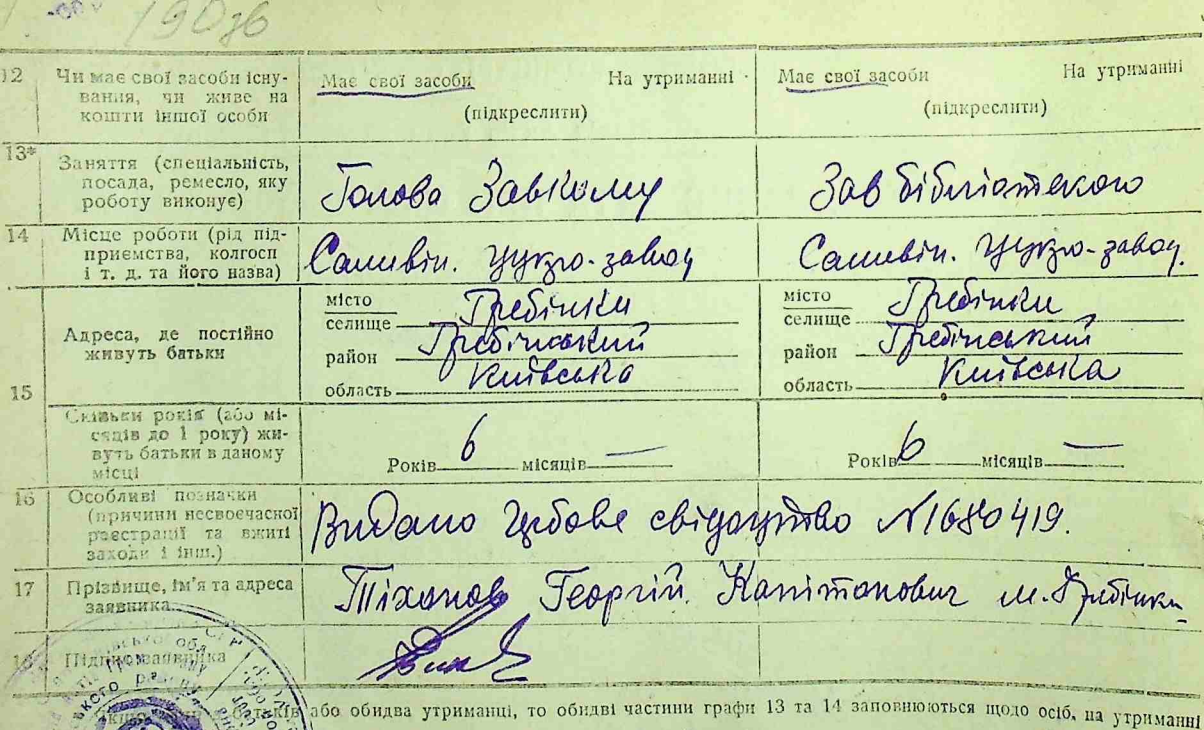 190зв
12 Чи має свої засоби існу-
вання, чи живе на
кошти іншої особи
Має свої засоби На утриманні
(підкреслити)
Має свої засоби На утриманні
(підкреслити)
13* Заняття (спеціальність,
посада, ремесло, яку
роботу виконує)
Голова Завкому
Зав бібліотекою
14 Місце роботи (рід під-
приємства, колгосп
і т. д. та його назва)
Саливін. цукро-завод
Саливін. цукро-завод.
15 Адреса, де постійно
живуть батьки
місто
селище Гребінки
район Гребінський
область Київська
місто
селище Гребінки
район Гребінський
область Київська
Скільки років (або мі-
сяців до 1 року) жи-
вуть батьки в даному
місці
Років 6 місяців —
Років 6 місяців —
16 Особливі позначки
(причини несвоєчасної
реєстрації та вжиті
заходи і інш.)
Видано свідоцтво №1680419.
17 Прізвище, ім'я та адреса
заявника
Тіханов Георгій Капітонович м. Гребінки
18 Підпис заявника
або обидва утриманці, то обидві частини графи 13 та 14 заповнюються щодо осіб, на утриманні